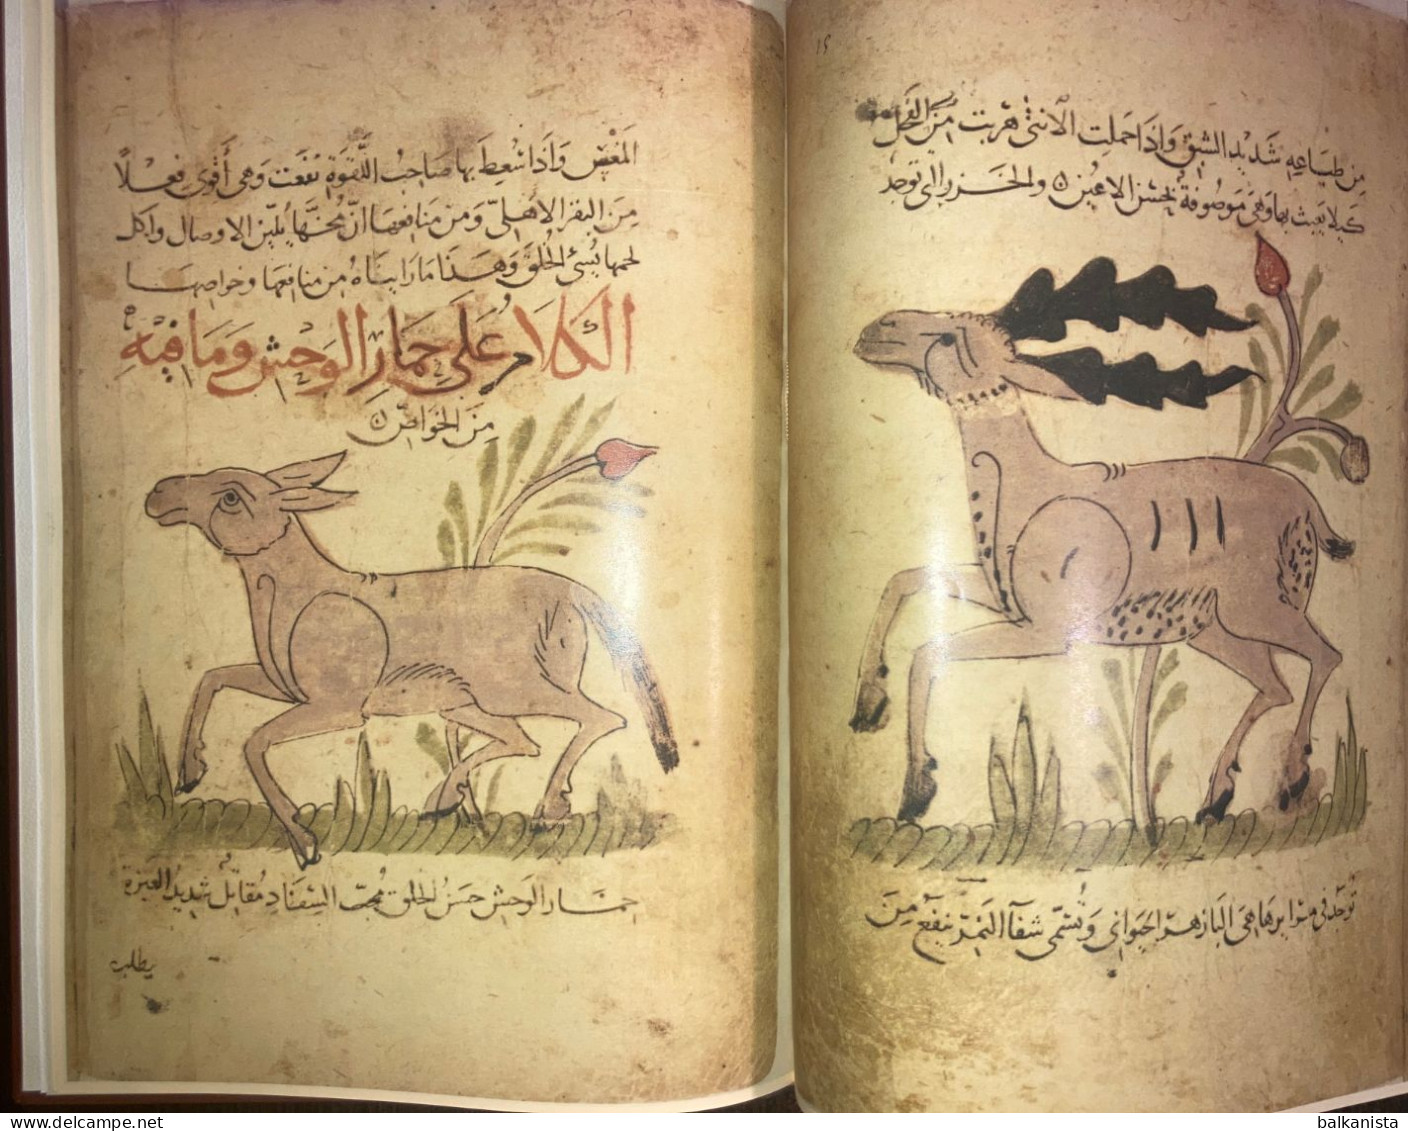 ١٥
من طباعه شديد الشبق وَاذا حملت الانثى هربت من الفحل
كيلا يعبث بها وهى موصوفة بحسن الاعين ٥ والخرز التى توجد
توجد فى مرايرها هى البازهر الحيوانى وتسمى شفا النمر ينفع من
المغص وَاذا سُعِط بها صَاحبُ اللَّقوَة نفعَت وَهى أَقوى فعلًا
منَ البقر الاهلىّ وَمن منافعهَا انّ مُخّهَا يُليّن الاوصال واكل
لحمها يُسئ الخُلق وَهذا مَا رايناهُ من منافعها وخواصهَا
الكَلامُ عَلى حمَار الوَحش وَمَا فيه
منَ الخوَاصّ ٥
حمَار الوَحش حسَنُ الخلق مُحبّ السّفاد مُقاتل شديدُ الغيرة
يطلب
balkanista